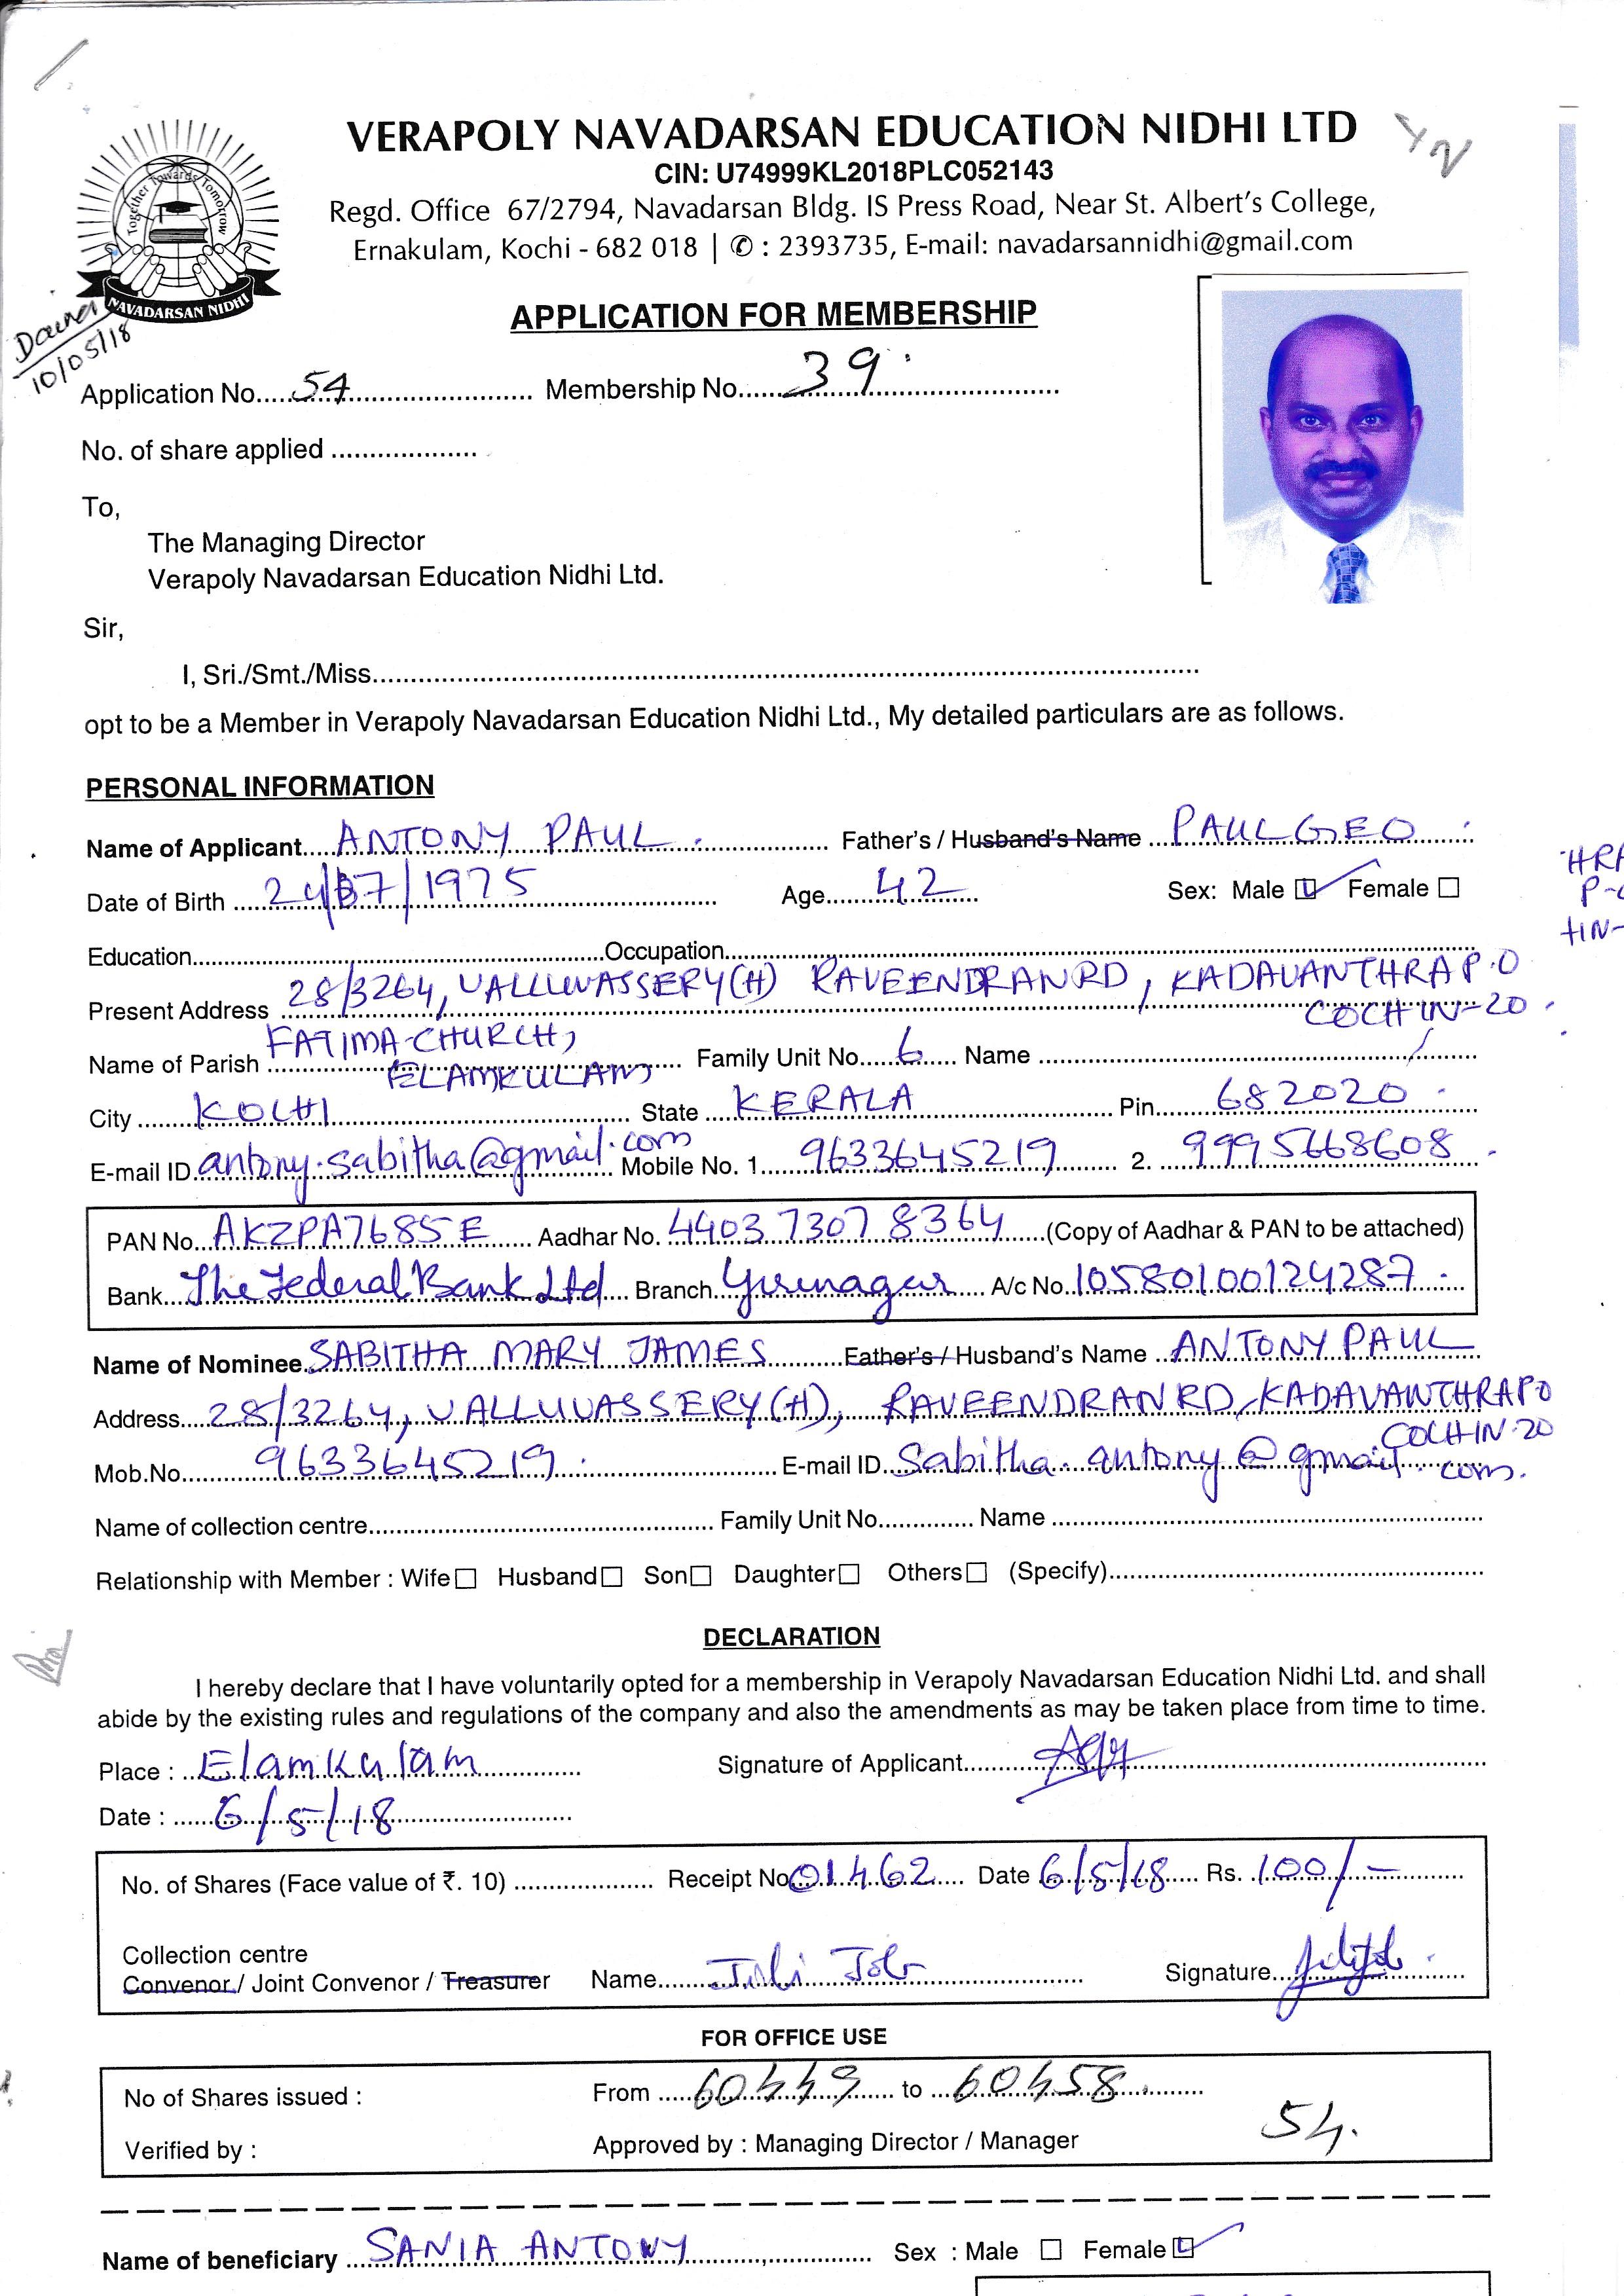 VERAPOLY NAVADARSAN EDUCATION NIDHI LTD
CIN: U74999KL2018PLC052143
Regd. Office 67/2794, Navadarsan Bldg. IS Press Road, Near St. Albert's College,
Ernakulam, Kochi - 682 018 | ✆ : 2393735, E-mail: navadarsannidhi@gmail.com
Together Towards Tomorrow
NAVADARSAN NIDHI
10/05/18
APPLICATION FOR MEMBERSHIP
Application No. 54 Membership No. 39
No. of share applied
To,
The Managing Director
Verapoly Navadarsan Education Nidhi Ltd.
Sir,
I, Sri./Smt./Miss
opt to be a Member in Verapoly Navadarsan Education Nidhi Ltd., My detailed particulars are as follows.
PERSONAL INFORMATION
Name of Applicant ANTONY PAUL Father's / Husband's Name PAUL GEO
Date of Birth 24/07/1975 Age 42 Sex: Male Female
Education Occupation
Present Address 28/3264, VALLUVASSERY(H) RAVEENDRAN RD, KADAVANTHRA P.O
COCHIN-20
Name of Parish FATIMA CHURCH, ELAMKULAM Family Unit No. 6 Name
City KOCHI State KERALA Pin 682020
E-mail ID antony.sabitha@gmail.com Mobile No. 1 9633645219 2. 9995668608
PAN No. AKZPA7685E Aadhar No. 4403 7307 8364 (Copy of Aadhar & PAN to be attached)
Bank The Federal Bank Ltd Branch Girinagar A/c No. 10580100124287
Name of Nominee SABITHA MARY JAMES Father's / Husband's Name ANTONY PAUL
Address 28/3264, VALLUVASSERY(H), RAVEENDRAN RD, KADAVANTHRA PO
COCHIN-20
Mob.No. 9633645219 E-mail ID Sabitha.antony@gmail.com
Name of collection centre Family Unit No. Name
Relationship with Member : Wife Husband Son Daughter Others (Specify)
DECLARATION
I hereby declare that I have voluntarily opted for a membership in Verapoly Navadarsan Education Nidhi Ltd. and shall
abide by the existing rules and regulations of the company and also the amendments as may be taken place from time to time.
Place : Elamkulam Signature of Applicant
Date : 6/5/18
No. of Shares (Face value of ₹. 10) Receipt No. 01462 Date 6/5/18 Rs. 100/-
Collection centre
Convenor / Joint Convenor / Treasurer Name Juli Job Signature
FOR OFFICE USE
No of Shares issued : From 60449 to 60458
54.
Verified by : Approved by : Managing Director / Manager
Name of beneficiary SANIA ANTONY Sex : Male Female